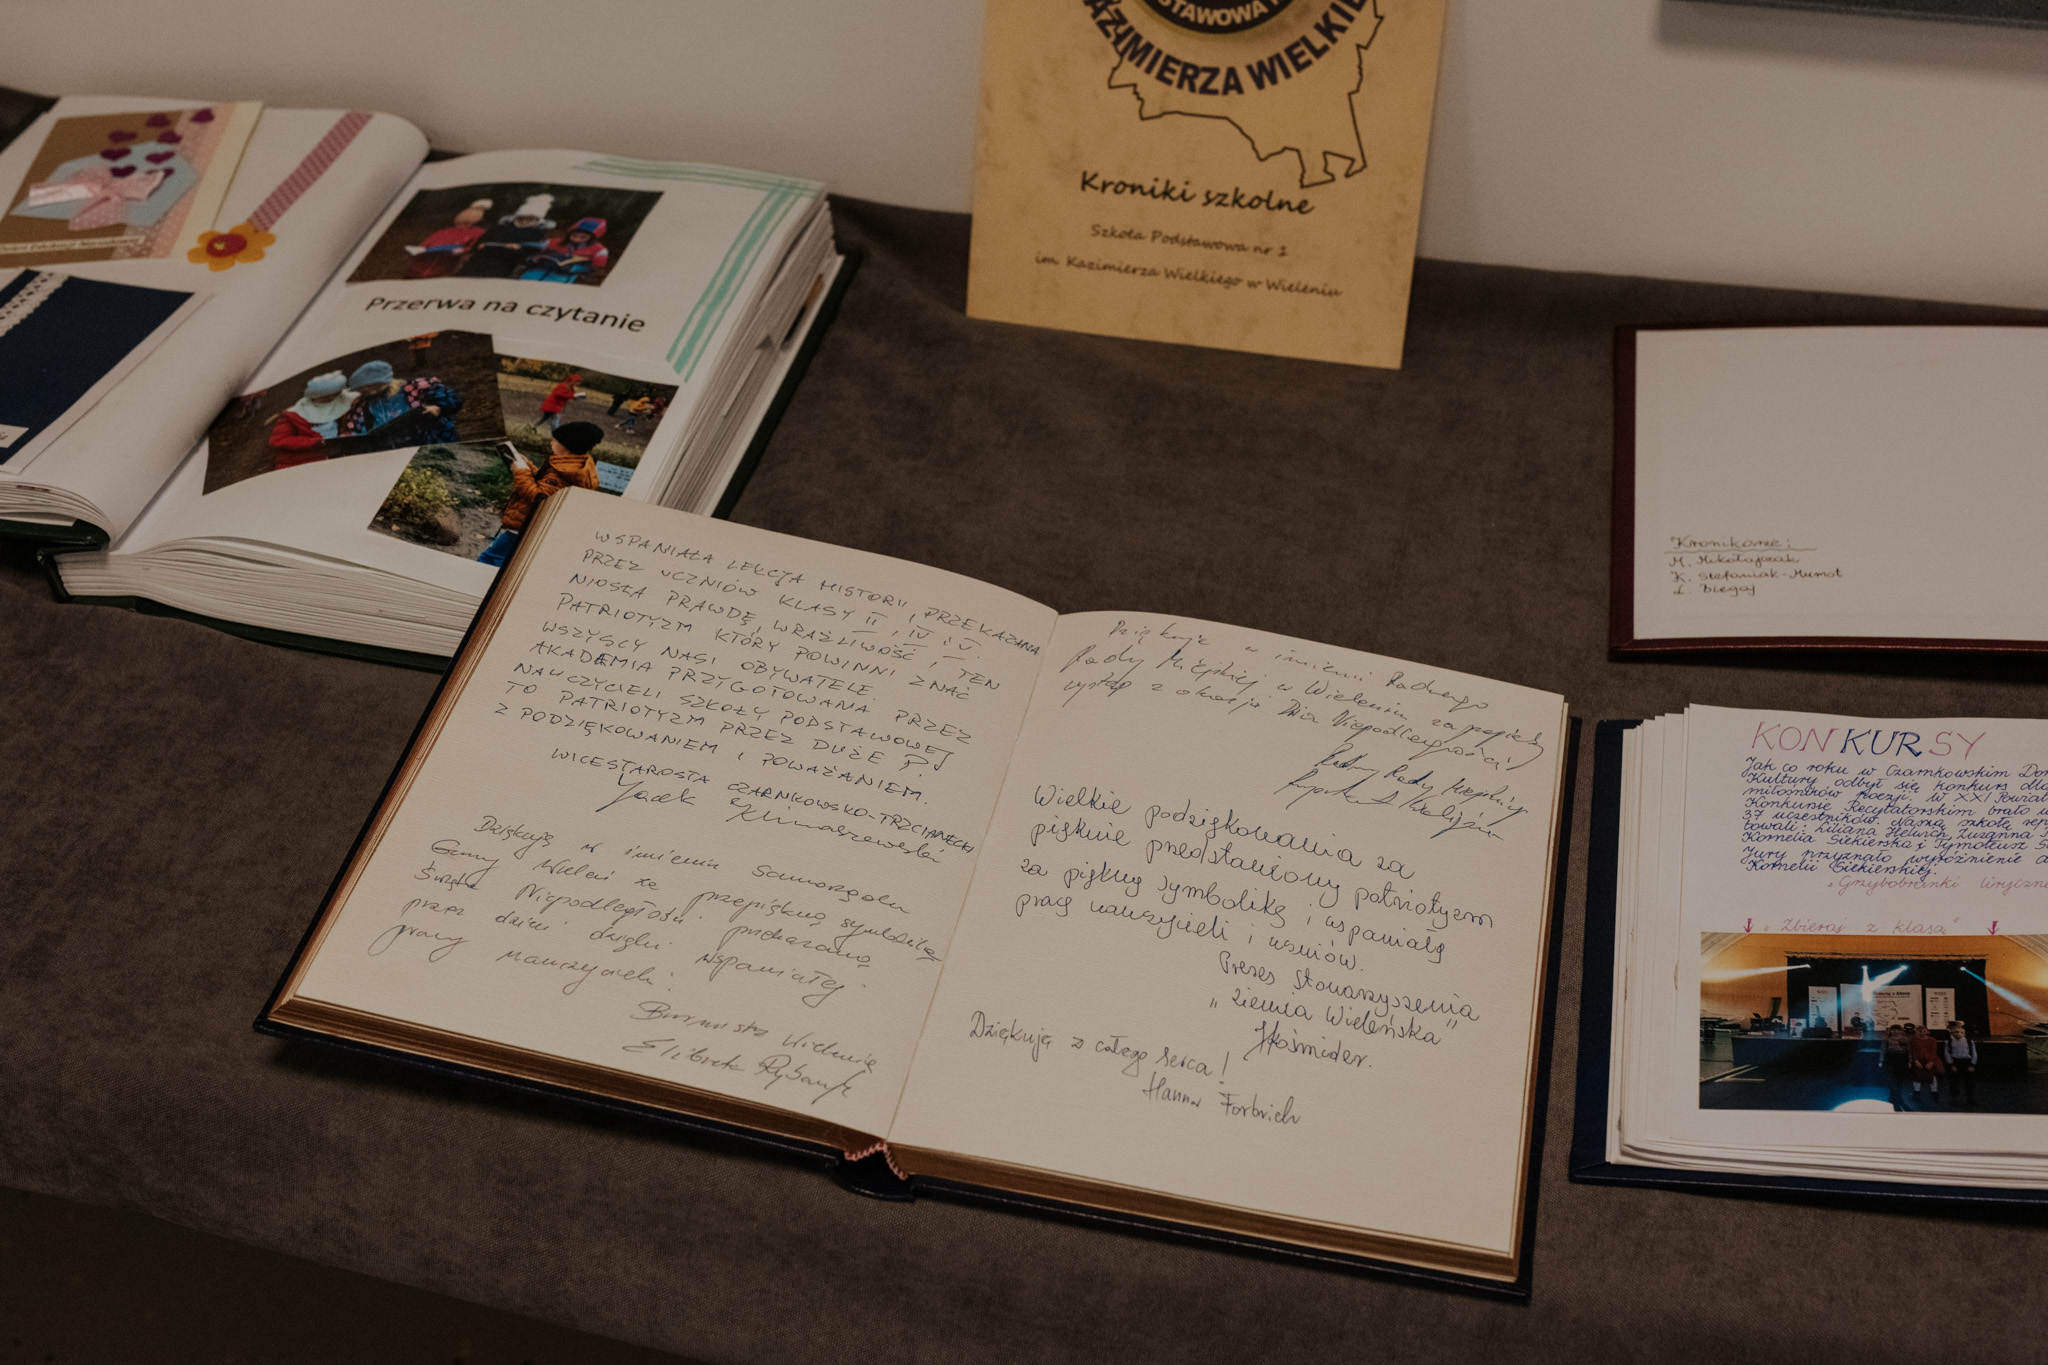 STAWOWA
KAZIMIERZA WIELKIE
Kroniki szkolne
Szkoła Podstawowa nr 1
im. Kazimierza Wielkiego w Wieleniu
Przerwa na czytanie
WSPANIAŁA LEKCJA HISTORII, PRZEKAZANA
PRZEZ UCZNIÓW KLASY II, IV i V.
NIOSŁA PRAWDĘ, WRAŻLIWOŚĆ, I TEN
PATRIOTYZM KTÓRY POWINNI ZNAĆ
WSZYSCY NASI OBYWATELE.
AKADEMIA PRZYGOTOWANA PRZEZ
NAUCZYCIELI SZKOŁY PODSTAWOWEJ
TO PATRIOTYZM PRZEZ DUŻE P.
Z PODZIĘKOWANIEM I POWAŻANIEM.
WICESTAROSTA CZARNKOWSKO-TRZCIANECKI
Jacek
Klimaszewski
Dziękuję w imieniu Samorządu
Gminy Wieleń za przepiękną symbolikę
Święta Niepodległości pokazaną
przez dzieci dzięki wspaniałej
pracy nauczycieli.
Burmistrz Wielenia
Elżbieta Rybarczyk
Dziękuję w imieniu Radnego
Rady Miejskiej w Wieleniu za piękny
występ z okazji Dnia Niepodległości
Radny Rady Miejskiej
Wielkie podziękowania za
pięknie przedstawiony patriotyzm
za piękną symbolikę i wspaniałą
pracę nauczycieli i uczniów.
Prezes Stowarzyszenia
"Ziemia Wieleńska"
HKośmider.
Dziękuję z całego serca!
Hanna Forbrich
Kronikarze:
M. Mikołajczak
K. Stefaniak-Mumot
L. Biegaj
KONKURSY
Jak co roku w Czarnkowskim Dom
Kultury odbył się konkurs dla
miłośników poezji. W XXI Powiat
Konkursie Recytatorskim brało u
37 uczestników. Naszą szkołę rep
towali: Liliana Helwich, Zuzanna
Kornelia Siekierska i Tymoteusz
Jury przyznało wyróżnienie d
Kornelii Siekierskiej.
"Grzybobranki liryczne
"Zbieraj z klasą"